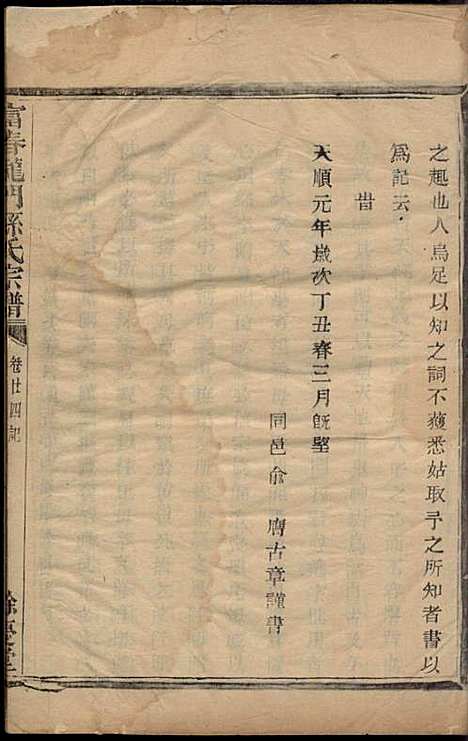 之趣也人烏足以知之詞不獲悉姑取予之所知者書以
爲記云
旹
天順元年歲次丁丑春三月旣朢
同邑俞 膺古章謹書
富春龍門孫氏宗譜
卷廿四記
餘慶堂